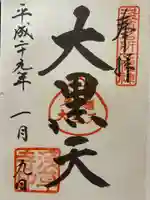 奉拝
大黒天
平成二十九年一月九日